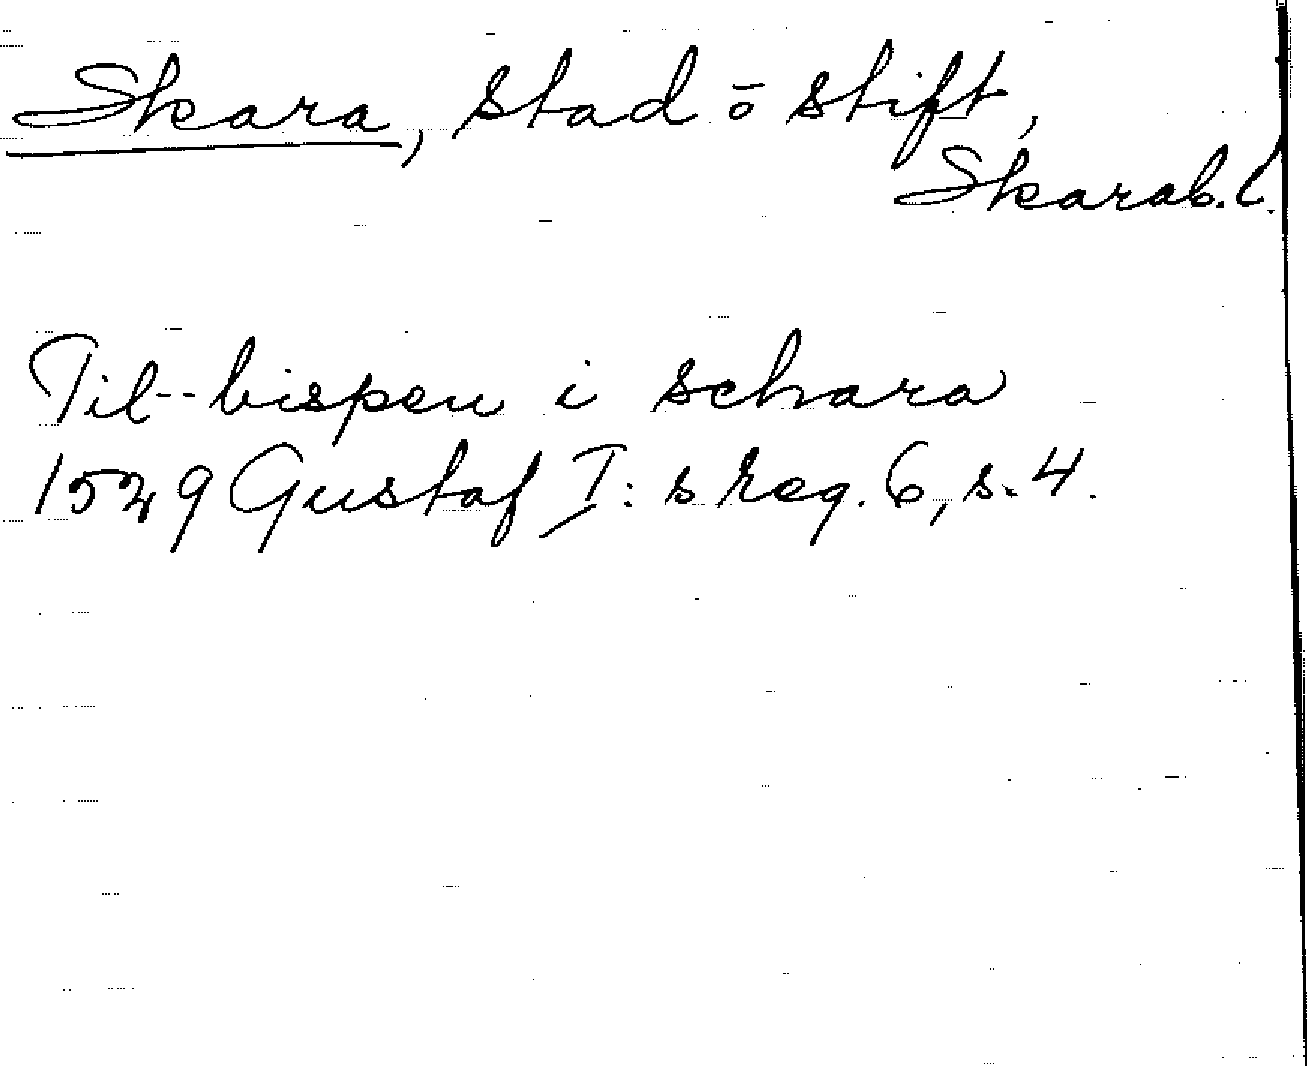 Skara, stad ō stift,
Skarab. l.
Til--bispen i schara
1529 Gustaf I:s reg. 6, s. 4.